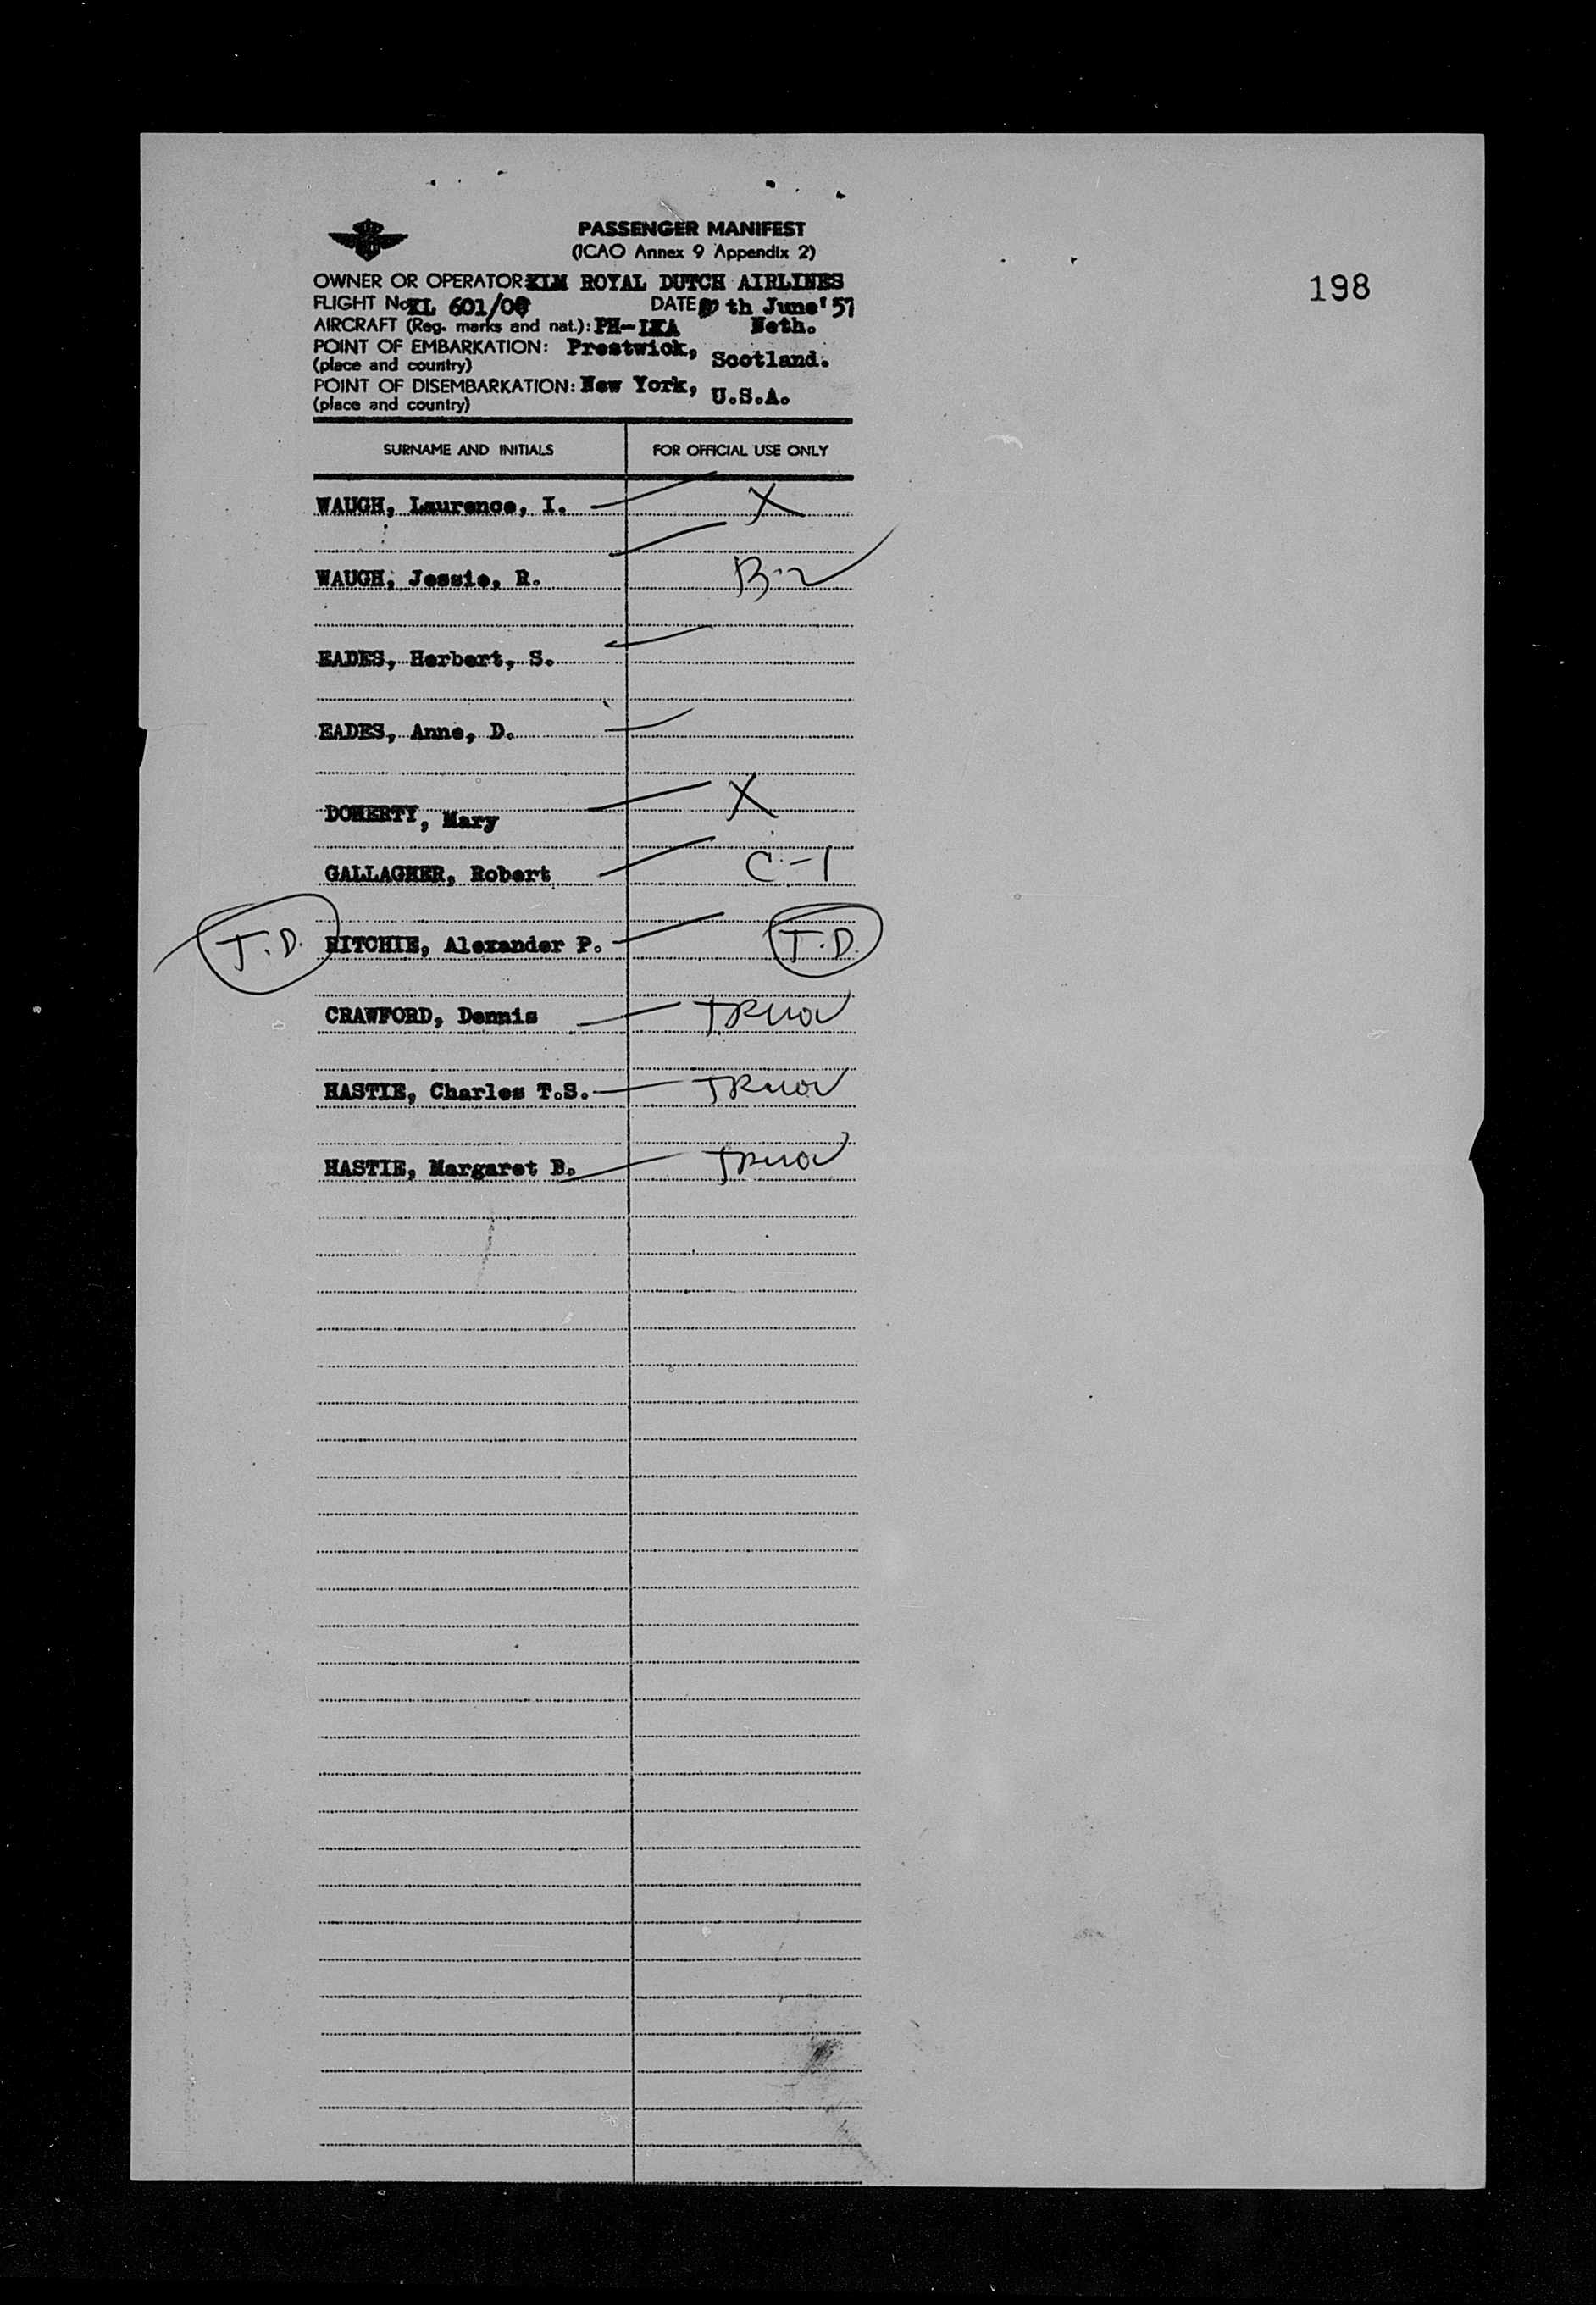 198
PASSENGER MANIFEST
(ICAO Annex 9 Appendix 2)
OWNER OR OPERATOR: KLM ROYAL DUTCH AIRLINES
FLIGHT No KL 601/ DATE th June'57
AIRCRAFT (Reg. marks and nat.): PH-LKA Neth.
POINT OF EMBARKATION: Prestwick, Scotland.
(place and country)
POINT OF DISEMBARKATION: New York, U.S.A.
(place and country)
SURNAME AND INITIALS FOR OFFICIAL USE ONLY
WAUGH, Laurence, I. X
WAUGH, Jessie, R. B-2
EADES, Herbert, S.
EADES, Anne, D.
DOHERTY, Mary X
GALLAGHER, Robert C-1
T.D. RITCHIE, Alexander P. T.D.
CRAWFORD, Dennis
HASTIE, Charles T.S.
HASTIE, Margaret B.